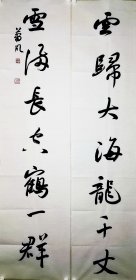 雲歸大海龍千丈
雪滿長空鶴一群